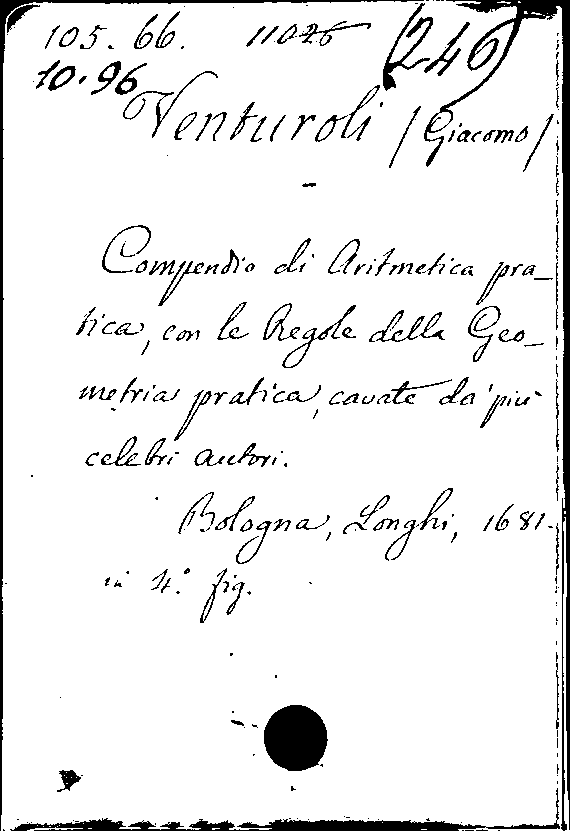 105. 66. 11026 (246)
10.96
Venturoli / Giacomo /
-
Compendio di Aritmetica pra_
tica, con le Regole della Geo_
metria pratica, cavate da' più
celebri autori.
Bologna, Longhi, 1681.
in 4.° fig.